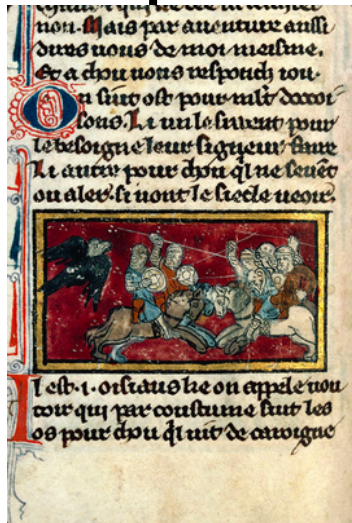 non. Mais par auenture aussi
dires uous de moi meisme.
Et a chou uous responch iou.
On siut ost pour mlt docoi
sons. Li un le siuent pour
le besoigne leur signeur faire
Li autre pour chou ql ne seuēt
ou aler. si uont le siecle ueoir.
Il est .i. oisiaus ke on appele uou
toir qui par coustume siut les
os pour chou ql uit de caroigne